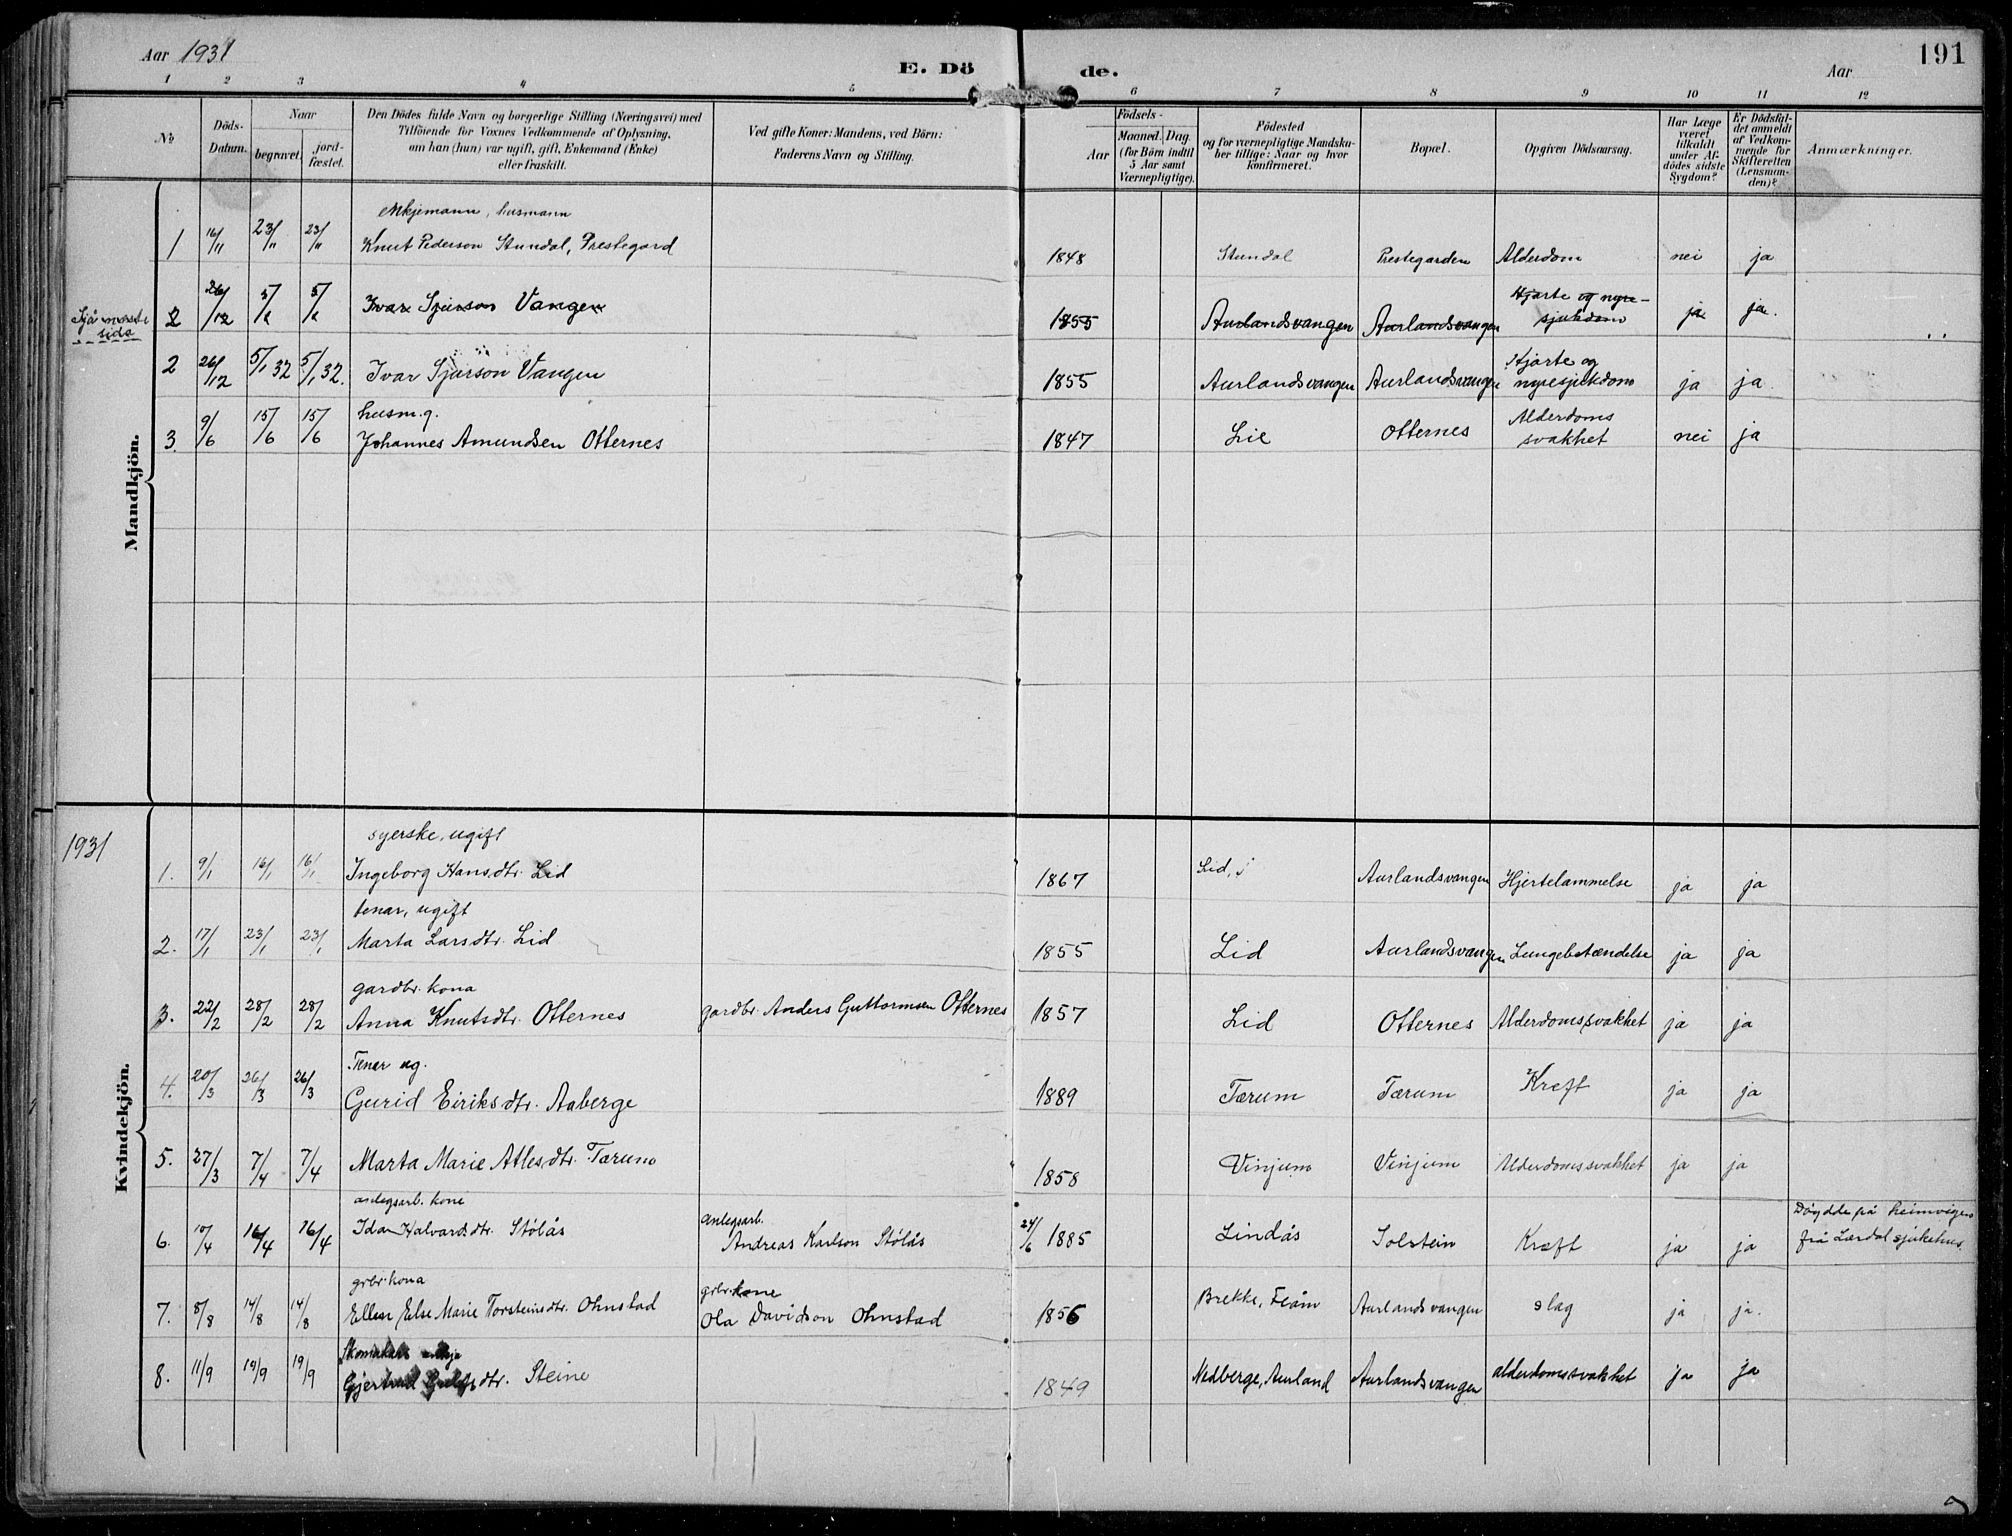 Aar 1931
E. Dö
de.
Aar
191
1 2 3 4 5 6 7 8 9 10 11 12
No
Döds-
Datum.
Naar
begravet.
jord-
fæstet.
Den Dödes fulde Navn og borgerlige Stilling (Næringsvei) med
Tilföiende for Voxnes Vedkommende af Oplysning,
om han (hun) var ugift, gift, Enkemand (Enke)
eller fraskilt.
Ved gifte Koner: Mandens, ved Börn:
Faderens Navn og Stilling.
Födsels-
Aar
Maaned. Dag.
(for Börn indtil
5 Aar samt
Værnepligtige).
Födested
og for værnepligtige Mandsku-
ber tillige: Naar og hvor
konfirmeret.
Bopæl.
Opgiven Dödsaarsag.
Har Læge
været
tilkaldt
under Af-
dödes sidste
Sygdom?
Er Dödsfal-
det anmeldt
af Vedkom-
mende for
Skifteretten
(Lensman-
den)?
Anmærkninger.
Mandkjön.
enkjemann, husmann
1 16/11 23/11 23/11 Knut Pederson Stundal, Prestegard 1848 Stundal Prestegarden Alderdom nei ja
Sjå næste
side
2 26/12 5/1 5/1 Ivar Sjurson Vangen 1855 Aurlandsvangen Aurlandsvangen Hjarte og nyre-
sjukdom ja ja.
2 26/12 5/1 32 5/1 32. Ivar Sjurson Vangen 1855 Aurlandsvangen Aurlandsvangen Hjarte og
nyresjukdom ja ja.
husm. g.
3. 9/6 15/6 15/6 Johannes Amundsen Otternes 1847 Lie Otternes Alderdoms
svakhet nei ja
Kvindekjön.
1931
syerske, ugift
1. 9/1 16/1 16/1 Ingeborg Hansdtr. Lid 1867 Lid, Aurlandsvangen Hjertelammelse ja ja
tenar, ugift
2. 17/1 23/1 23/1 Marta Larsdtr. Lid 1855 Lid Aurlandsvangen Lungebetændelse ja ja
gardbr. kona
3. 22/2 28/2 28/2 Anna Knutsdtr. Otternes gardbr. Anders Guttormsen Otternes 1857 Lid Otternes Alderdomssvakhet ja ja
Tenar ug.
4. 20/3 26/3 26/3 Gurid Eiriksdtr. Aaberge 1889 Tærum Tærum Kreft ja ja
5. 27/3 7/4 7/4 Marta Marie Atlesdtr. Tærum 1858 Vinjum Vinjum Alderdomssvakhet ja ja
anlegsarb. kone
6. 10/4 16/4 16/4 Ida Halvardsdtr. Stølås anlegsarb.
Andreas Karlson Stølås 24/6 1885 Lindås Solstein Kræft ja ja Døydde på heimvigen
frå Lærdal sjukehus.
grbr. kona
7. 8/8 14/8 14/8 Ellen Else Marie Torsteinsdtr. Ohnstad grbr. kone
Ola Davidson Ohnstad 1856 Brekke, Flåm Aurlandsvangen slag ja ja.
Skomakar enkja
8. 11/9 19/9 19/9 Gjertrud dtr. Steine 1849 Nedberge, Aurland Aurlandsvangen alderdomssvakhet ja ja